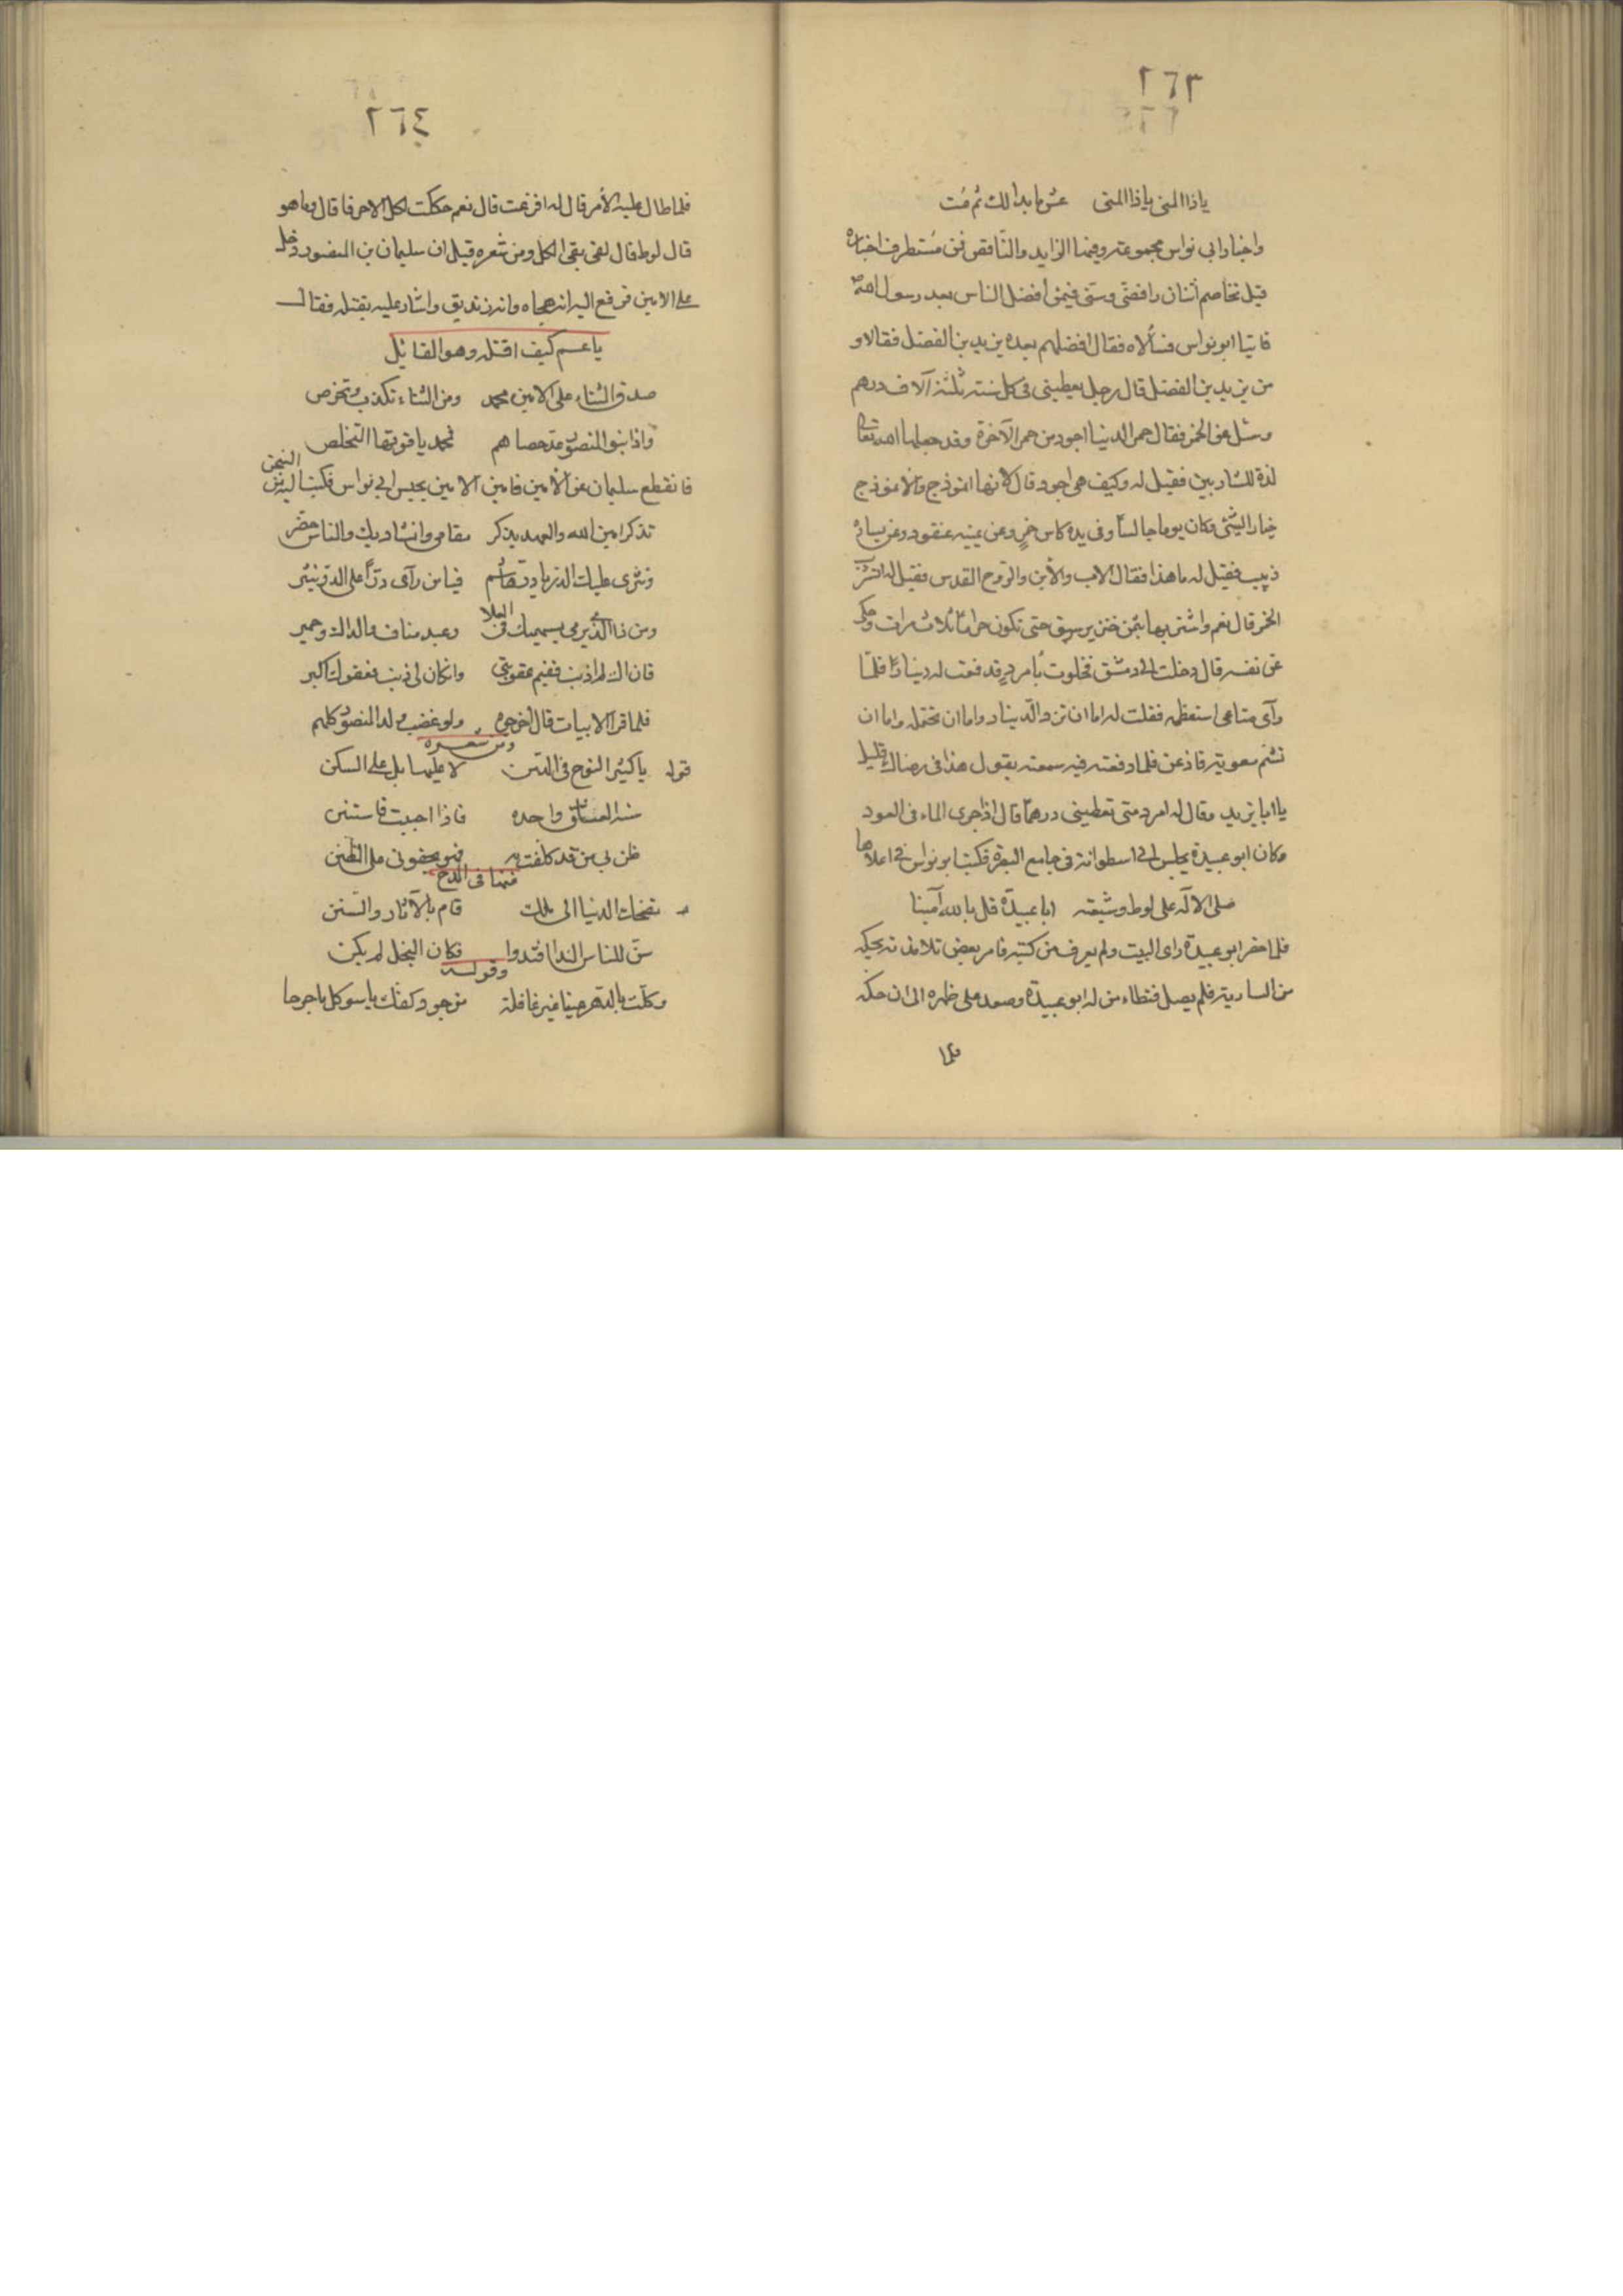 ٢٦٣
ياذا المنى ياذا المنى عش ما بدا لك ثم مُت
واخبار ابى نواس مجموعة وفيها الزايد والناقص فمن مُستطرف اخباره
قيل تخاصم أثنان رافضى وسنى فيمن أفضل الناس بعد رسول الله
فاتيا ابو نواس فسألاه فقال افضلهم بعده يزيد بن الفضل فقالا و
من يزيد بن الفضل قال رجل يعطينى فى كل سنة ثلثة آلاف درهم
وسئل عن الخمر فقال خمر الدنيا اجود من خمر الآخرة وقد جعلها الله تعالى
لذة للشاربين فقيل له وكيف هى اجود قال لانها انموذج والانموذج
خيار الشئ فكان يوما جالسا وفى يده كاس خمر وعن يمينه عنقود وعن يساره
زبيب فقيل له ما هذا فقال الاب والأبن والروح القدس فقيل له اتشرب
الخمر قال نعم واشتريها بثمن خنزير سرق حتى تكون حراما ثلاث مرات وحكى
عن نفسه قال دخلت الى دمشق فخلوت بأمرد قد فعت له دينارا فلما
رآى متاعى استعظمه فقلت له اما ان ترد الدينار واما ان تحتمله واما ان
تشتم معوية فاذعن فلما دفعته فيه سمعته يقول هذا فى رضاك قليل
يا ابا يزيد وقال له امرد متى تعطينى درهما قال اذا جرى الماء فى العود
وكان ابو عبيدة يجلس الى اسطوانة فى جامع البصرة فكتب ابو نواس فى اعلاها
صلى الاله على لوط وشيعته ابا عبيدة قل بالله آمينا
فلما حضر ابو عبيدة راى البيت ولم يعرف من كتبه فامر بعض تلامذته بحكه
من السارية فلم يصل فتطاء من له ابو عبيدة وصعد على ظهره الى ان حكه
فلما
٢٦٤
فلما طال عليه الأمر قال له افرغت قال نعم حككت الكل الا حرفا قال وما هو
قال لوط قال لقى بقى الكل ومن شعره قيل ان سليمان بن المنصور دخل
على الامين فرفع اليه انه هجاه وانه زنديق واشار عليه بقتله فقال
يا عم كيف اقتله وهو القايل
صدق الثناء على الامين محمد ومن الثناء تكذب وتخرص
واذا بنو المنصور عد حصاهم فمحمد ياقوتها المتخلص
فانقطع سليمان عن الأمين فامر الامين بحبس ابى نواس فكتب اليه من السجن
تذكر امين الله والعهد يذكر مقامى وانشاديك والناس حضر
ونثرى عليك الدر يا در هاشم فيا من رآى درا على الدر ينثر
ومن ذا الذى يرمى بسهميك فى العلا وعبد مناف والداك وحمير
فان اك لم اذنب ففيم عقوبتى وان كان لى ذنب فعفوك اكبر
فلما قرا الابيات قال اخرجوه ولو غضب ولد المنصور كلهم
ومن شعره
قوله يا كثير النوح فى الدمن لا عليها بل على السكن
سنة العشاق واحده فاذا احببت فاستنن
ظن بى من قد كلفت به فهو يجفونى على الظنن
منها فى المدح
تضحك الدنيا الى ملك قام بالآثار والسنن
سن للناس الندا فندوا فكان البخل لم يكن
وقوله
وكلت بالدهر عينا غير غافلة من جود كفك ياسو كل ما جرحا